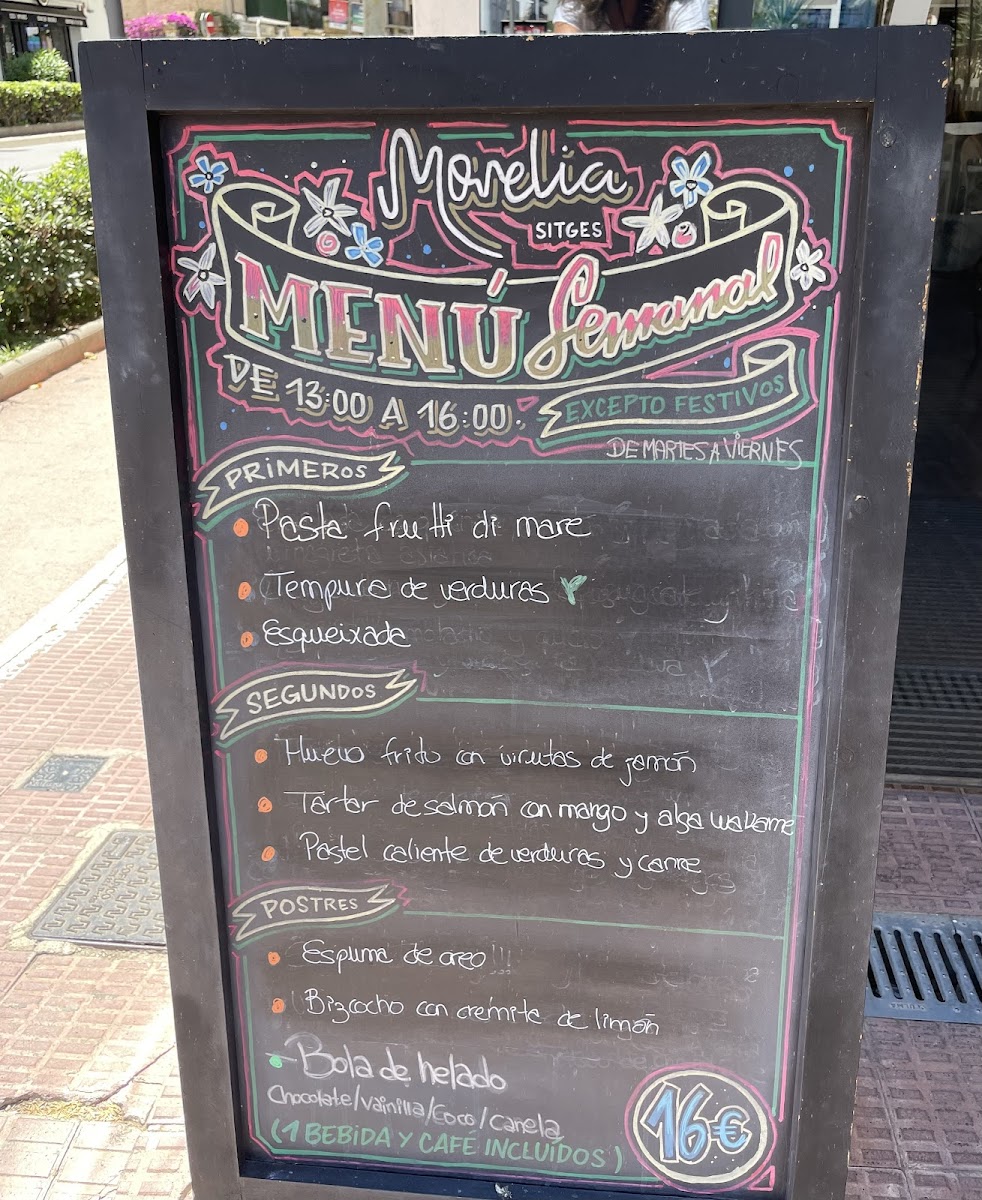 Morelia
SITGES
MENÚ Semanal
DE 13:00 A 16:00.
EXCEPTO FESTIVOS
DE MARTES A VIERNES
PRIMEROS
Pasta frutti di mare
Tempura de verduras
Esqueixada
SEGUNDOS
Huevo frito con virutas de jamón
Tartar de salmón con mango y alga wakame
Pastel caliente de verduras y carne
POSTRES
Espuma de oreo!!!
Bizcocho con crémita de limón
- Bola de helado
Chocolate/Vainilla/Coco/Canela
(1 BEBIDA Y CAFÉ INCLUÍDOS)
16€